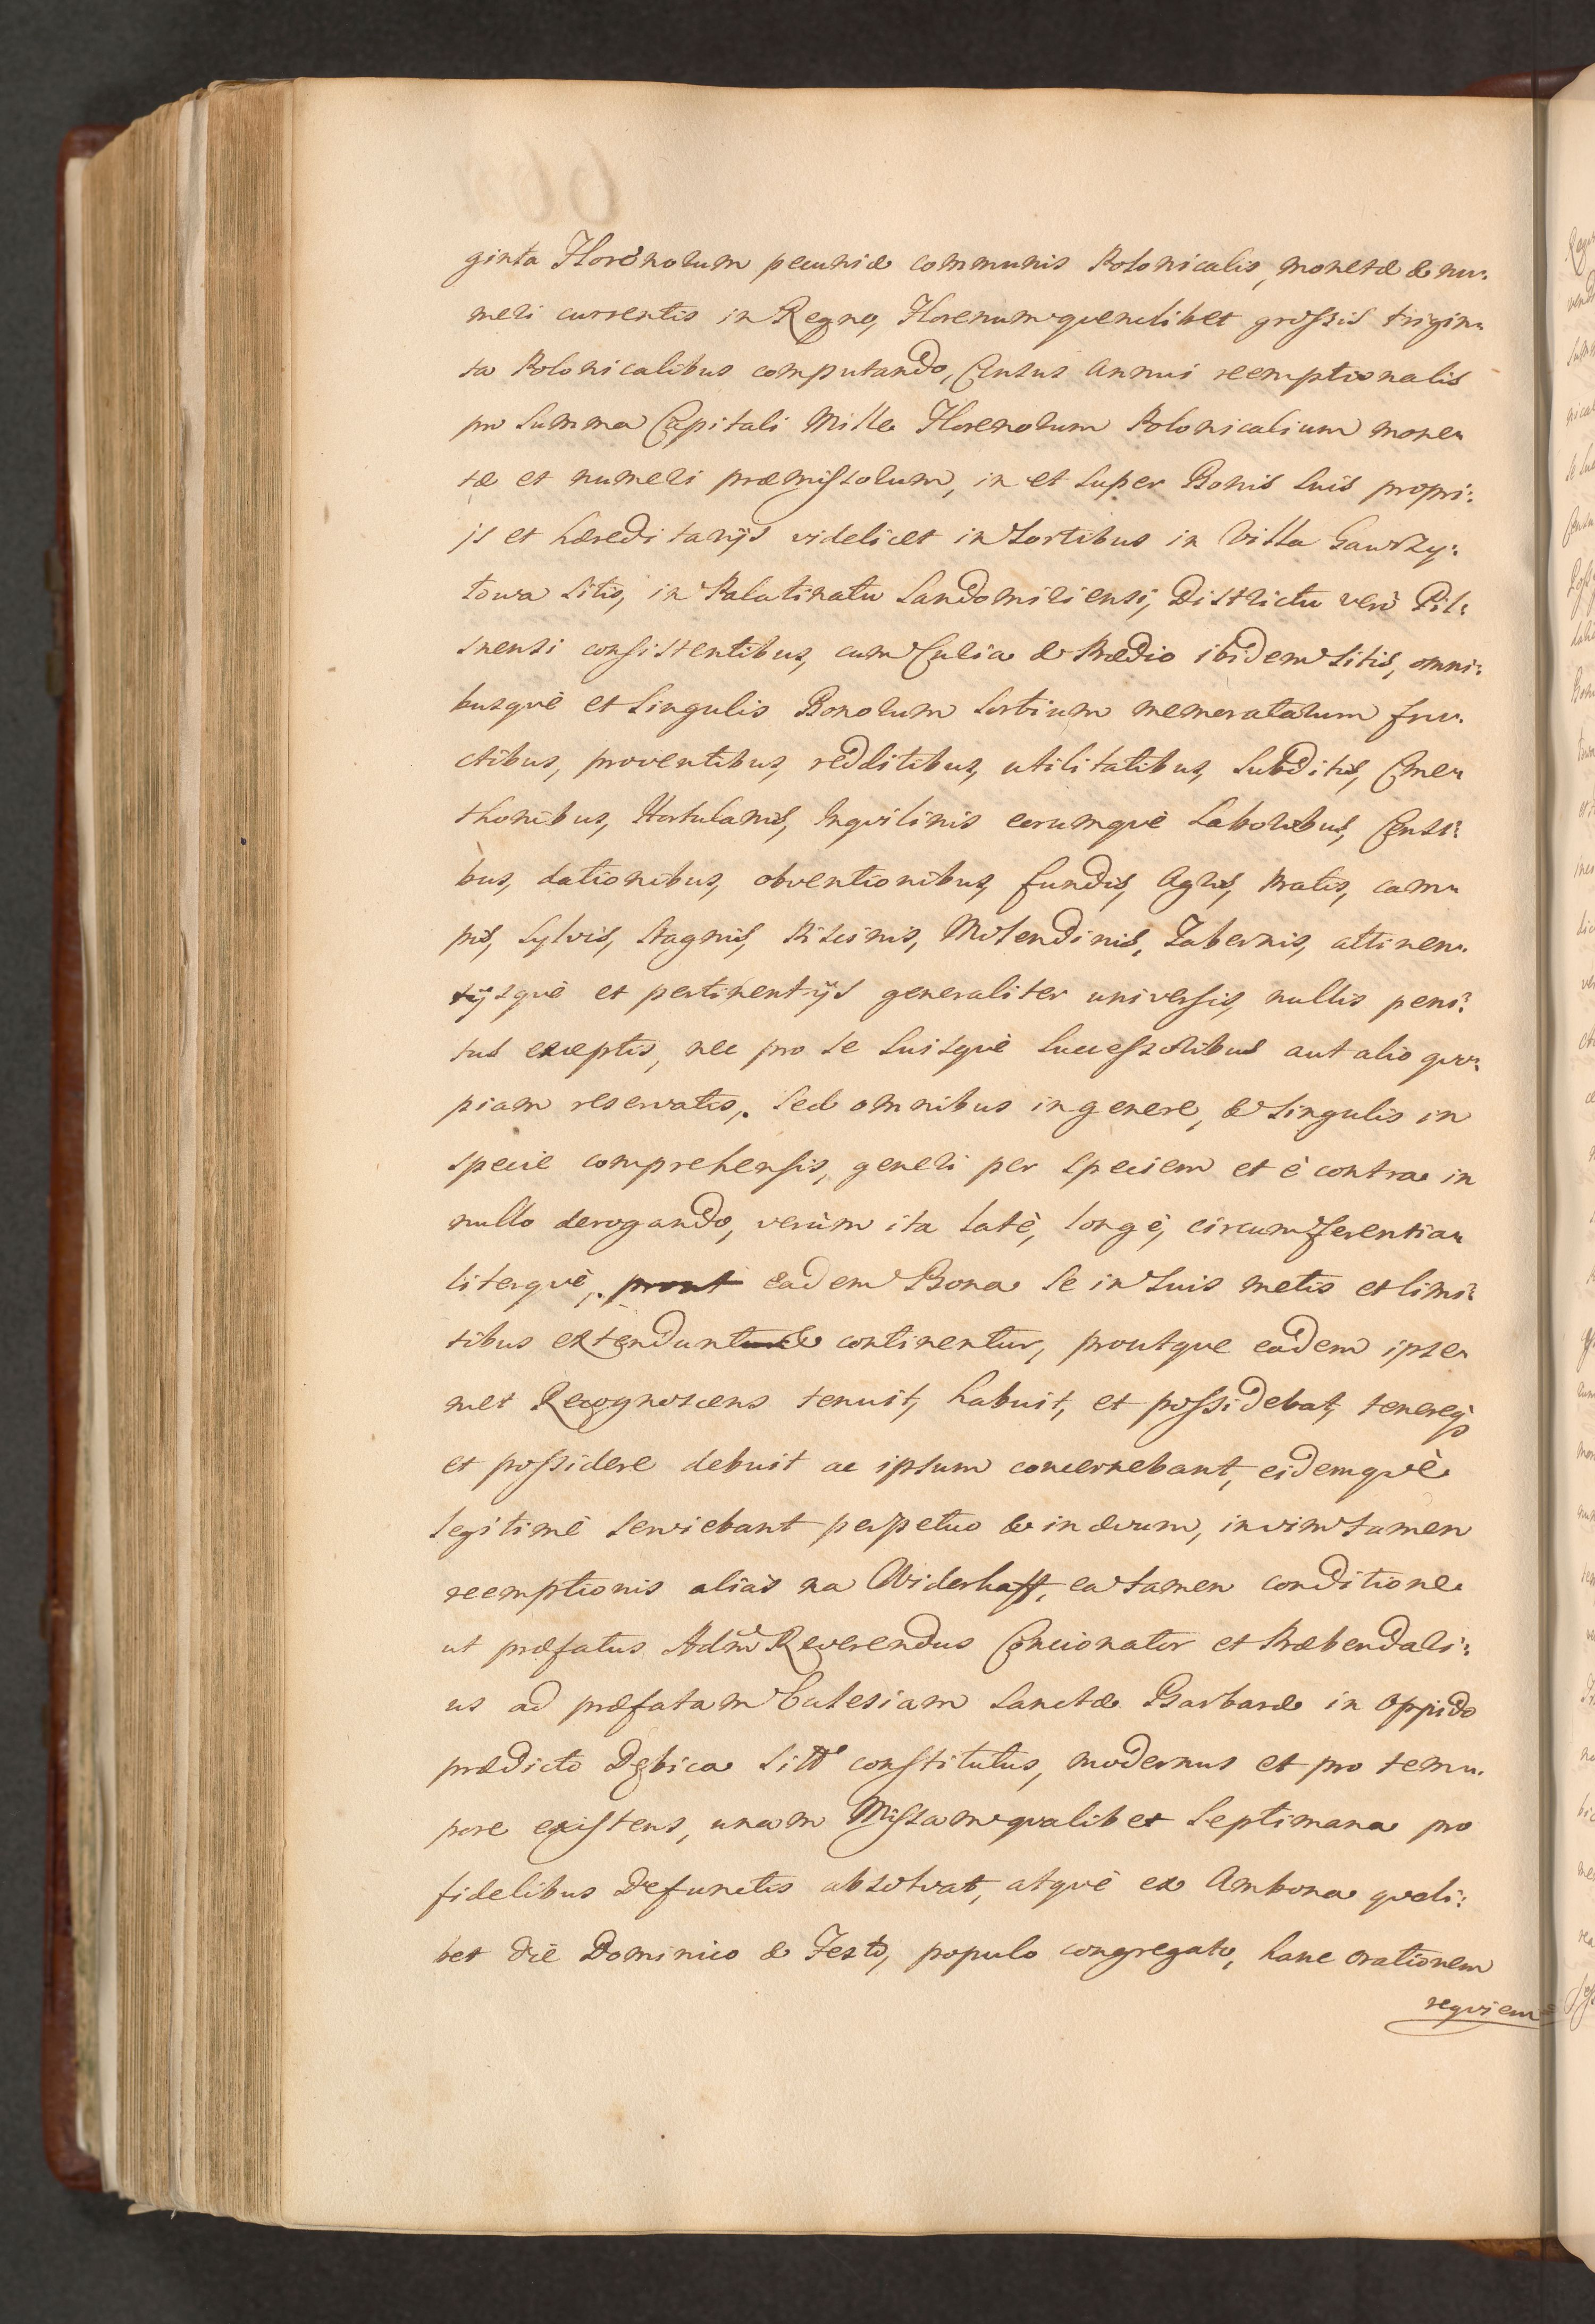 ginta Florenorum pecuniæ communis Polonicalis, monetæ & nu-
meri currentis in Regno, Florenum quemlibet grossis trigin-
ta Polonicalibus computando, Census annui reemptionalis
pro Summa Capitali Mille Florenorum Polonicalium mone-
tæ et numeri præmissorum, in et super Bonis suis propri-
is et hæreditarijs videlicet in Sortibus in Villa Gawrzy-
lowa sitis, in Palatinatu Sandomiriensi, Districtu verò Pil-
snensi consistentibus, cum Curia & Prædio ibidem sitis, omni-
busquè et singulis Bonorum Sortium memoratarum fru-
ctibus, proventibus, redditibus, utilitatibus, Subditis, Cme-
thonibus, Hortulanis, Inquilinis eorumquè Laboribus, Censi-
bus, dationibus, obventionibus, fundis, Agris, Pratis, cam-
pis, Sylvis, Stagnis, Piscinis, Molendinis, Tabernis, attinen-
tijsquè et pertinentijs generaliter universis, nullis peni-
tus exceptis, nec pro se suisquè Successoribus aut alio quo-
piam reservatis, sed omnibus in genere, & singulis in
specie comprehensis, generi per speciem et è contra in
nullo derogando, verùm ita latè, longè, circumferentia-
literquè, prout eadem Bona se in suis metis et limi-
tibus extendunt & continentur, proutque eadem ipse-
met Recognoscens tenuit, habuit, et possidebat, tenereq;
et possidere debuit ac ipsum concernebant, eidemquè
legitimè serviebant perpetuo & in ævum, in vim tamen
reemptionis aliàs na Widerkaff, ea tamen conditione
ut præfatus Adm Reverendus Concionator et Præbendari-
us ad præfatam Ecclesiam Sanctæ Barbaræ in Oppido
prædicto Dębica Sitt constitutus, modernus et pro tem-
pore existens, unam Missam qualibet Septimana pro
fidelibus Defunctis absolvat, atquè ex Ambona quali-
bet diè Dominico & Festo, populo congregato, hanc orationem
requiem